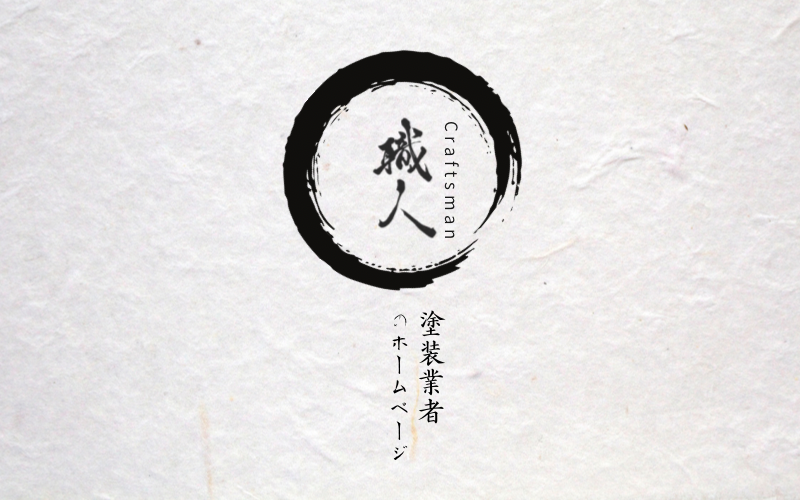 職人
Craftsman
塗装業者
のホームページ